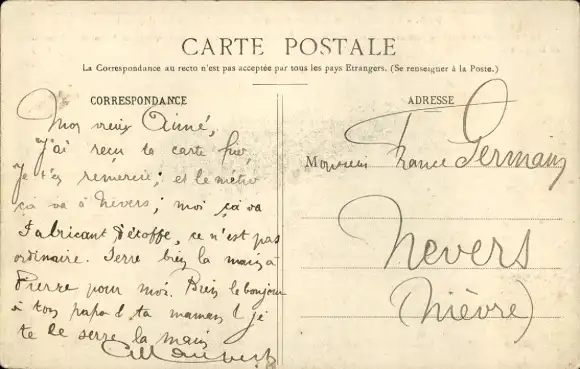 CARTE POSTALE
La Correspondance au recto n'est pas acceptée par tous les pays Etrangers. (Se renseigner à la Poste.)
CORRESPONDANCE
Mon vieux Aimé,
J'ai reçu ta carte hier,
Je t'en remercie; et le métier
ça va à Nevers; moi ça va
Fabricant d'étoffe, ce n'est pas
ordinaire. Serre bien la main à
Pierre pour moi. Bien le bonjour
à ton papa et ta maman et je
te serre la main
ADRESSE
Monsieur France Germain
Nevers
(Nièvre)